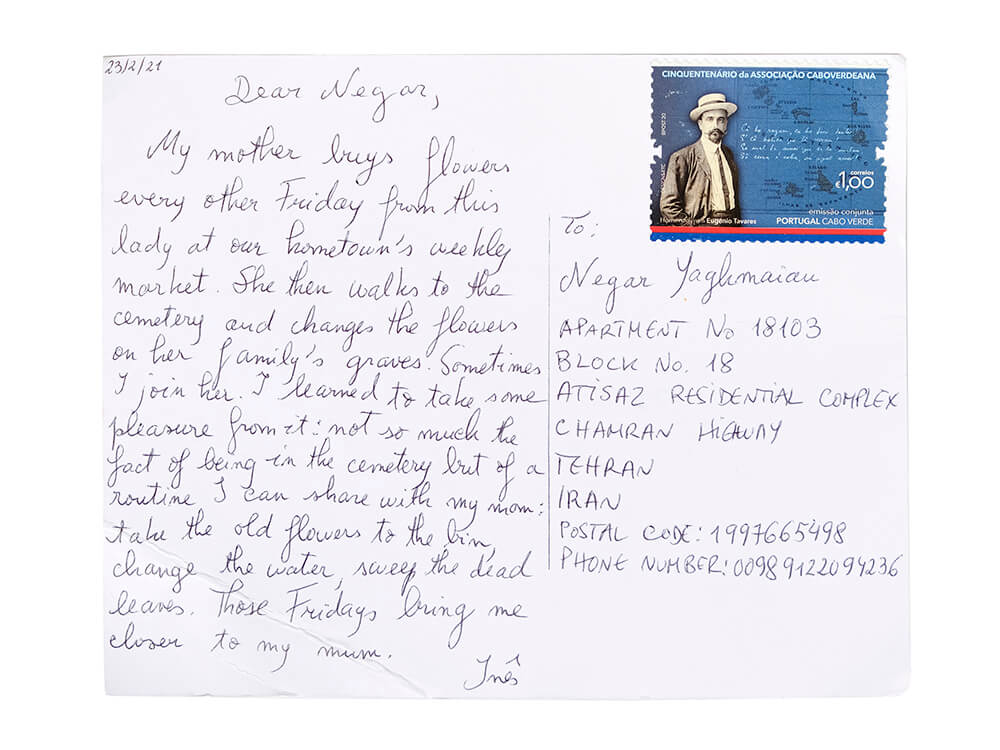 23/2/21
Dear Negar,
My mother buys flowers
every other Friday from this
lady at our hometown's weekly
market. She then walks to the
cemetery and changes the flowers
on her family's graves. Sometimes
I join her. I learned to take some
pleasure from it: not so much the
fact of being in the cemetery but of a
routine I can share with my mom:
take the old flowers to the bin,
change the water, sweep the dead
leaves. Those Fridays bring me
closer to my mum.
Inês
CINQUENTENÁRIO da ASSOCIAÇÃO CABOVERDEANA
correios
€1,00
emissão conjunta
Eugénio Tavares
PORTUGAL CABO VERDE
To:
Negar Yaghmaian
APARTMENT No 18103
BLOCK No. 18
ATISAZ RESIDENTIAL COMPLEX
CHAMRAN HIGHWAY
TEHRAN
IRAN
POSTAL CODE: 1997665498
PHONE NUMBER: 00989122094236